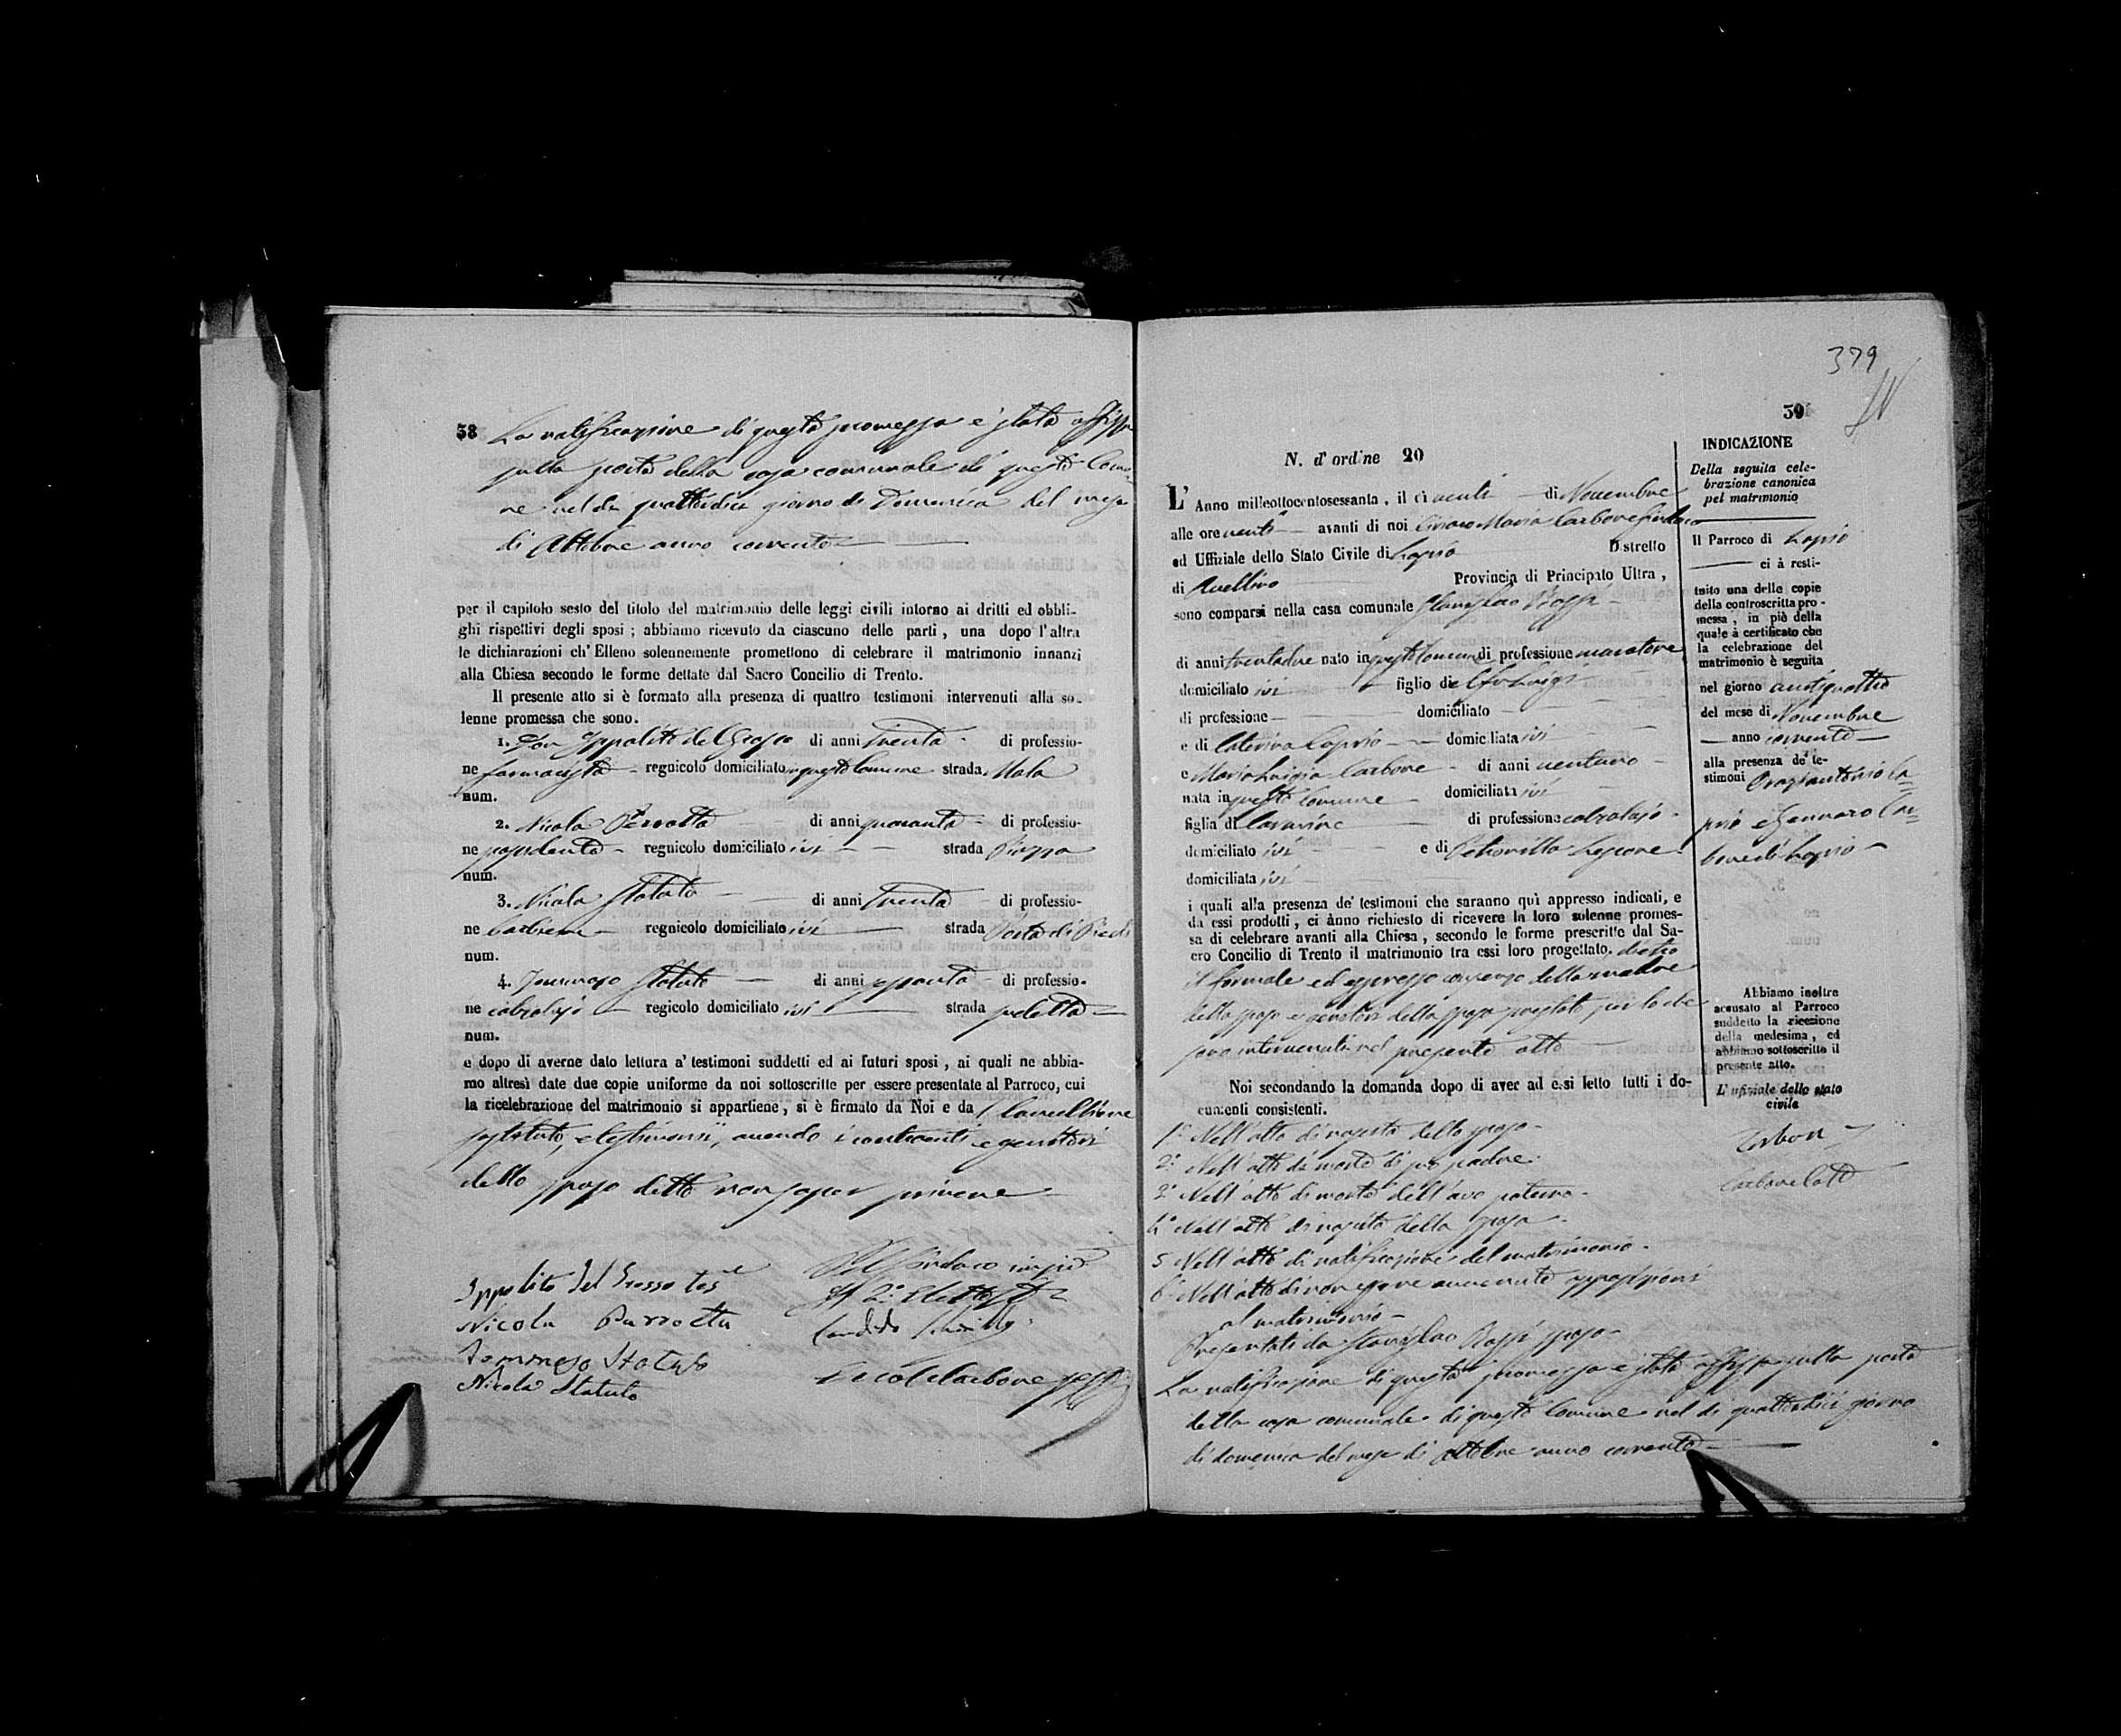 38 La notificazione di questa promessa è stata affissa
sulla porta della casa comunale di questo Comu=
ne nel dì quattordici giorno di Domenica del mese
di Ottobre anno corrente
per il capitolo sesto del titolo del matrimonio delle leggi civili intorno ai dritti ed obbli-
ghi rispettivi degli sposi ; abbiamo ricevuto da ciascuno delle parti , una dopo l'altra
le dichiarazioni ch' Elleno solennemente promettono di celebrare il matrimonio innanzi
alla Chiesa secondo le forme dettate dal Sacro Concilio di Trento.
Il presente atto si è formato alla presenza di quattro testimoni intervenuti alla so-
lenne promessa che sono.
1. Don Ippolito del Grosso di anni trenta di professio-
ne farmacista regnicolo domiciliato in questo Comune strada
num.
2. Nicola Perrotta di anni quaranta di professio-
ne possidente regnicolo domiciliato ivi strada Piazza
num.
3. Nicola Statuto di anni trenta di professio-
ne barbiere regnicolo domiciliato ivi strada Porta di
num.
4. Tommaso Statuto di anni sessanta di professio-
ne calzolajo regicolo domiciliato ivi strada sudetta
num.
e dopo di averne dato lettura a' testimoni suddetti ed ai futuri sposi , ai quali ne abbia-
mo altresì date due copie uniforme da noi sottoscritte per essere presentate al Parroco, cui
la ricelebrazione del matrimonio si appartiene , si è firmato da Noi e da Cancelliere
sostituto, e testimonii, avendo i contraenti e genitori
dello sposo detto non saper scrivere
Ippolito Del Grosso tes
Nicola Perrotta
Tommaso Statuto
Nicola Statuto
Pel Sindaco impedito
Il 2.° Eletto
Candido
Nicola Carbone
379
39
N. d'ordine 20
L' Anno milleottocentosessanta , il dì venti di Novembre
alle ore venti avanti di noi Ciriaco Maria Carbone Sindaco
ed Uffiziale dello Stato Civile di Lapio Distretto
di Avellino Provincia di Principato Ultra ,
sono comparsi nella casa comunale Stanislao
di anni trentadue nato in questo Comune di professione muratore
domiciliato ivi figlio di Luigi
di professione domiciliato
e di Caterina Caprio domiciliata ivi
e Maria Luigia Carbone di anni ventuno
nata in questo Comune domiciliata ivi
figlia di di professione calzolajo
domiciliato ivi e di Petronilla Lepore
domiciliata ivi
i quali alla presenza de' testimoni che saranno quì appresso indicati, e
da essi prodotti , ci ànno richiesto di ricevere la loro solenne promes-
sa di celebrare avanti alla Chiesa , secondo le forme prescritte dal Sa-
cro Concilio di Trento il matrimonio tra essi loro progettato. dietro
il formale ed espresso consenso della madre
dello sposo e genitori della sposa prestato per lo che
sono intervenuti nel presente atto
Noi secondando la domanda dopo di aver ad essi letto tutti i do-
cumenti consistenti.
1.° Nell'atto di nascita dello sposo
2.° Nell'atto di morte di suo padre
3.° Nell'atto di morte dell'avo paterno
4.° Nell'atto di nascita della sposa
5 Nell'atto di notificazione del matrimonio
6.° Nell'atto di non essere avvenute opposizioni
al matrimonio
Presentati da Stanislao sposo
La notificazione di questa promessa è stata affissa sulla porta
della casa comunale di questo Comune nel dì quattordici giorno
di domenica del mese di Ottobre anno corrente
INDICAZIONE
Della seguita cele-
brazione canonica
pel matrimonio
Il Parroco di Lapio
ci à resti-
tuito una delle copie
della controscritta pro-
messa , in piè della
quale à certificato che
la celebrazione del
matrimonio è seguita
nel giorno ventiquattro
del mese di Novembre
anno corrente
alla presenza de' te-
stimoni Oraziantonio Ca=
prio e Gennaro Car=
bone di Lapio
Abbiamo inoltre
accusato al Parroco
suddetto la ricezione
della medesima , ed
abbiamo sottoscritto il
presente atto.
L' ufiziale dello stato
civile
Carbone